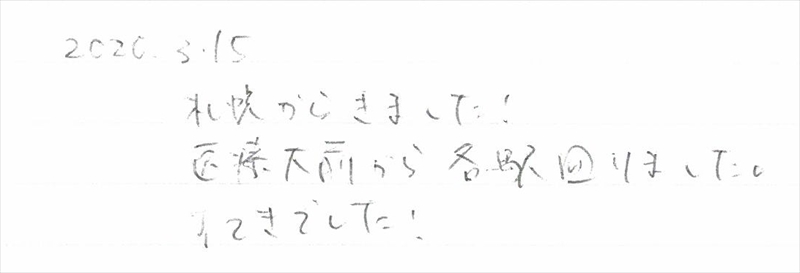 2020.3.15
札幌からきました!
医療大前から各駅回りました。
すてきでした!